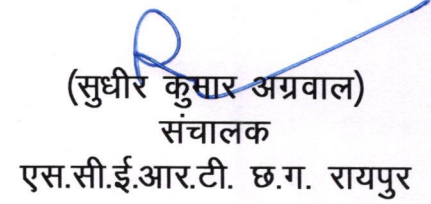 (सुधीर कुमार अग्रवाल)
संचालक
एस.सी.ई.आर.टी. छ.ग. रायपुर